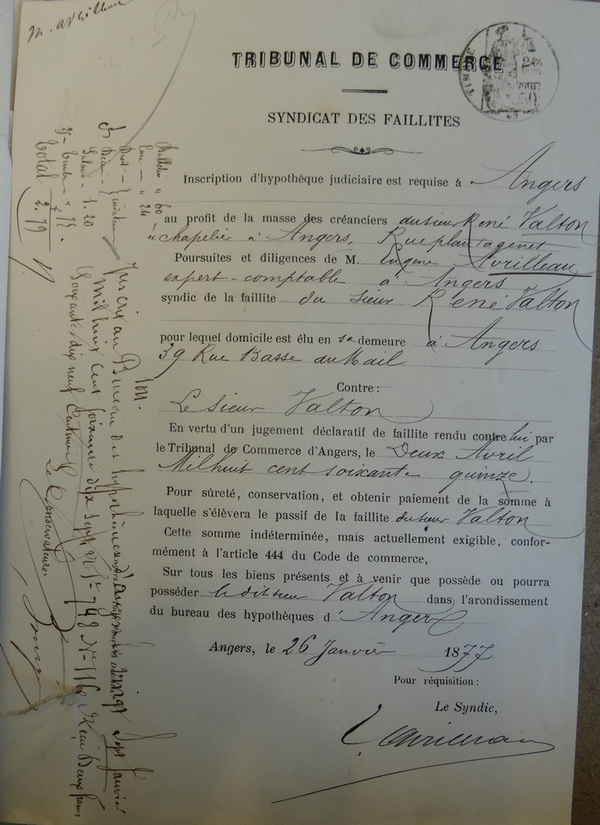 M. Avrilleau
TRIBUNAL DE COMMERCE
SYNDICAT DES FAILLITES
Inscription d'hypothèque judiciaire est requise à Angers
au profit de la masse des créanciers du sieur René Valton
chapelier à Angers, Rue plantagenet
Poursuites et diligences de M. Eugène Avrilleau
expert-comptable à Angers
syndic de la faillite du sieur René Valton
pour lequel domicile est élu en sa demeure à Angers
39 Rue Basse du Mail
Contre :
Le sieur Valton
En vertu d'un jugement déclaratif de faillite rendu contre lui par
le Tribunal de Commerce d'Angers, le Deux Avril
Mil huit cent soixante quinze.
Pour sûreté, conservation, et obtenir paiement de la somme à
laquelle s'élèvera le passif de la faillite du sieur Valton
Cette somme indéterminée, mais actuellement exigible, confor-
mément à l'article 444 du Code de commerce,
Sur tous les biens présents et à venir que possède ou pourra
posséder le dit sieur Valton dans l'arondissement
du bureau des hypothèques d'Angers
Angers, le 26 Janvier 1877
Pour réquisition :
Le Syndic,
E. Avrilleau
Total 2.79
Inscrit au Bureau des hypothèques Sept Janvier
mil huit cent soixante dix sept
Le Conservateur